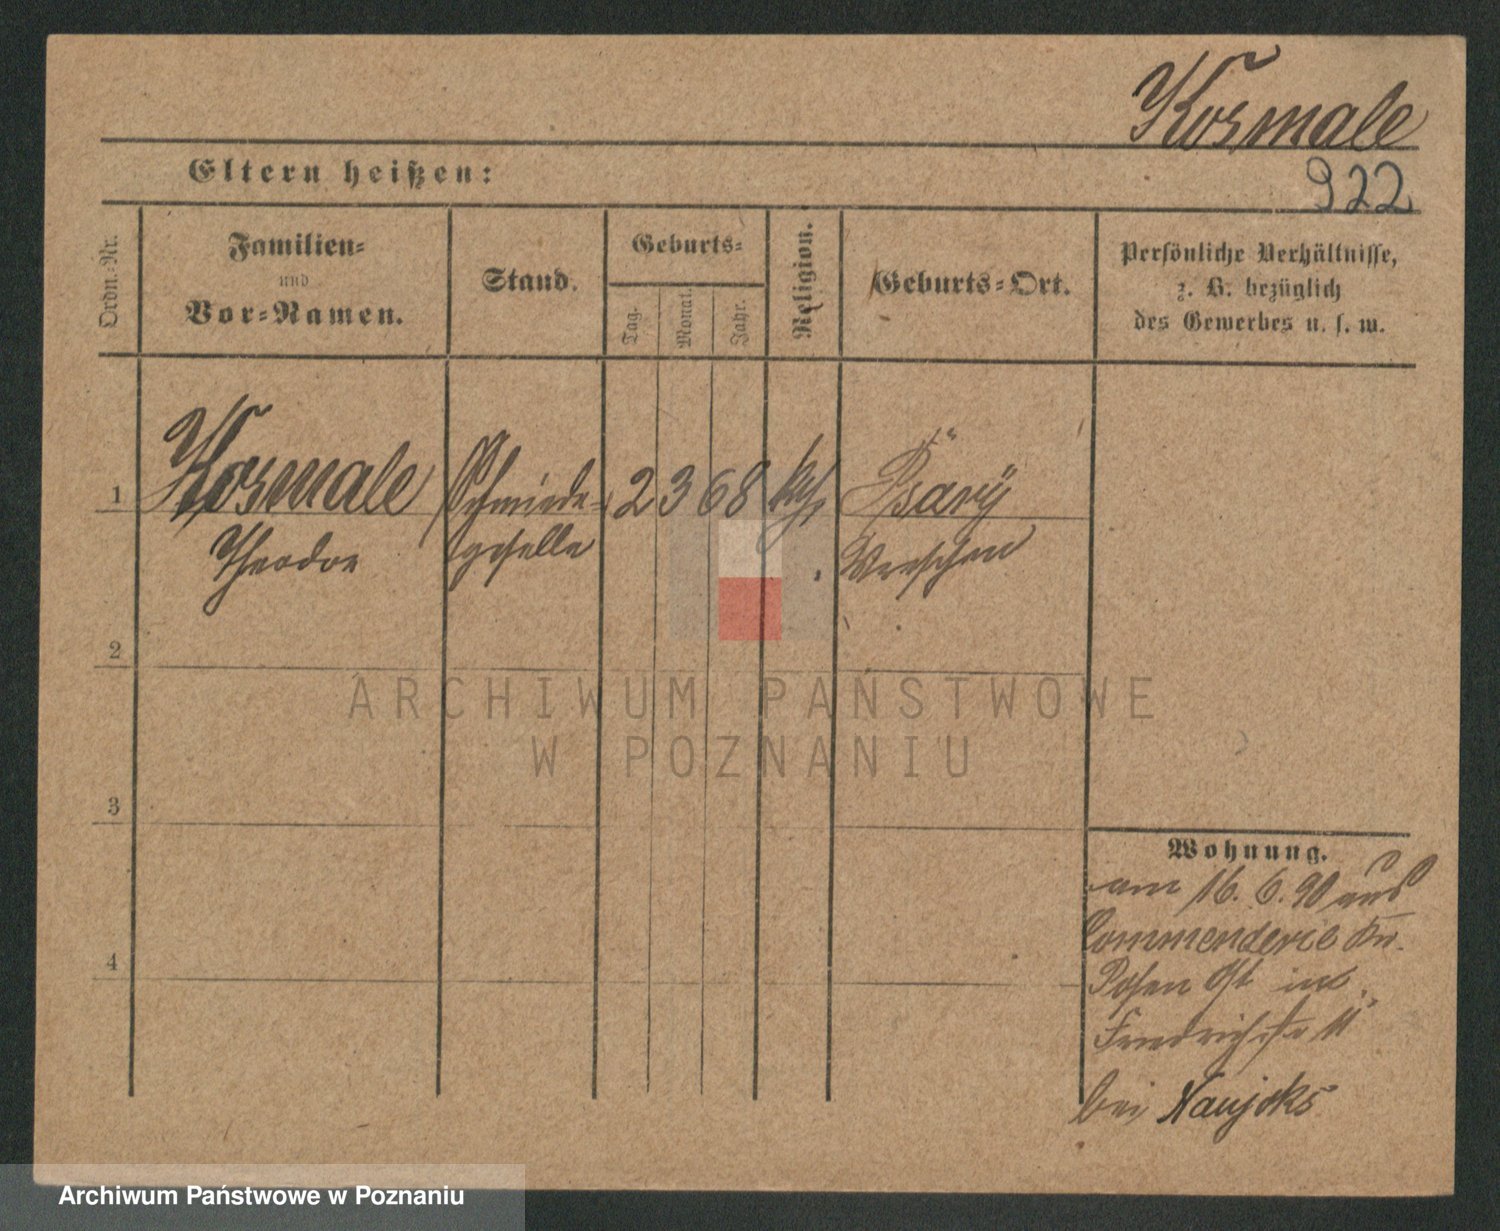 Kosmale
Eltern heißen:
922
Ordn.-Nr.
Familien-
und
Vor-Namen.
Stand.
Geburts-
Tag.
Monat.
Jahr.
Religion.
Geburts-Ort.
Persönliche Verhältnisse,
z. B. bezüglich
des Gewerbes u. s. w.
1 Kosmale Schmiede- 2 3 68 kth. Psary
Theodor geselle Wreschen
2
ARCHIWUM PAŃSTWOWE
W POZNANIU
3
Wohnung.
am 16. 6. 90 aus
Commenderie
4
Posen Ost
Friedrichstr 11
bei Naujoks
Archiwum Państwowe w Poznaniu